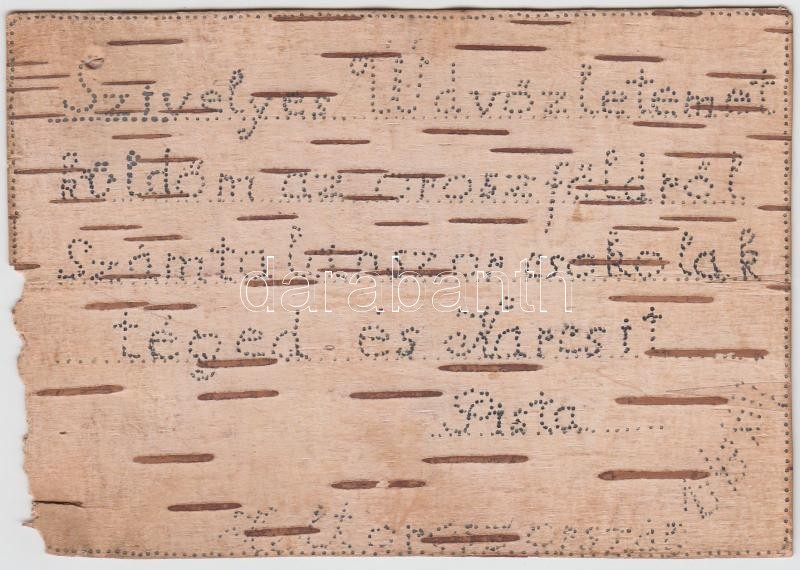 Szívelyes Üdvözletemet
küldöm az orosz földről
Számtalanszor csokolak
téged és Karcsit
Pista
darabanth